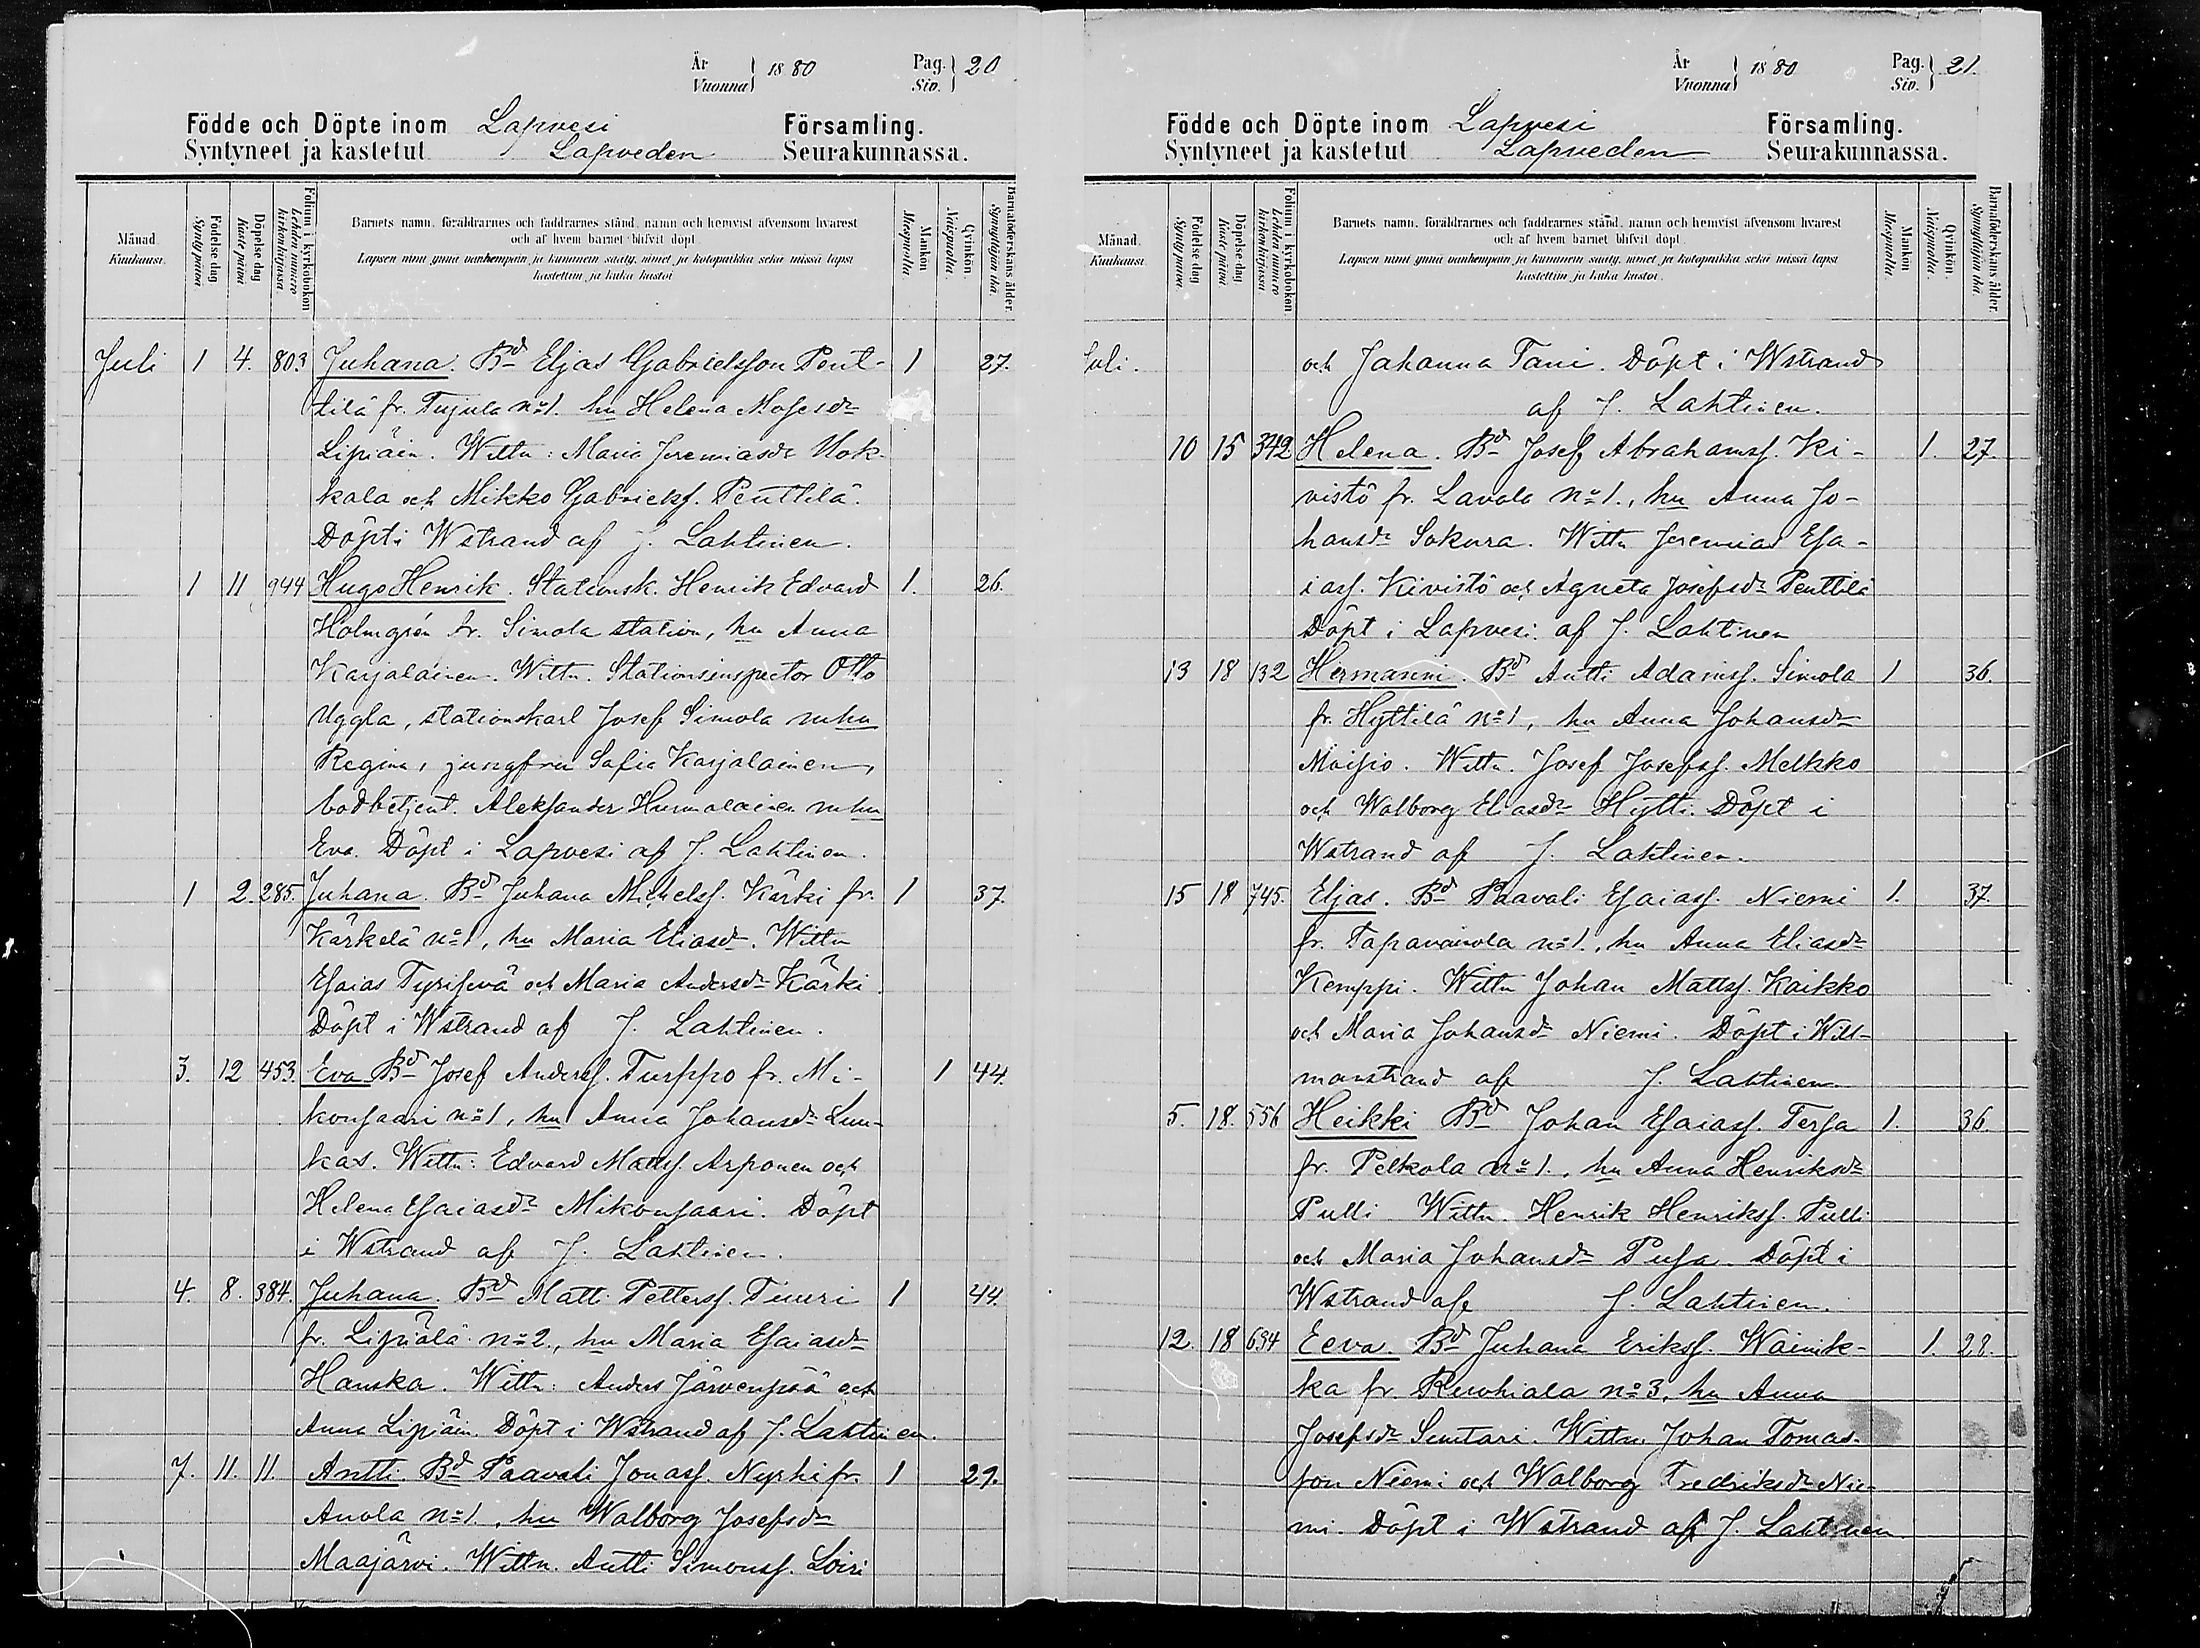 År
Vuonna } 1880
Pag.
Siv. } 20
Födde och Döpte inom Lapvesi Församling.
Syntyneet ja kastetut Lapveden Seurakunnassa.
Månad.
Kuukausi.
Födelse dag
Syntypäivä.
Döpelse dag
Kaste päivä
Folium i kyrkoboken
Lehden numero
kirkonkirjassa.
Barnets namn, föräldrarnes och faddrarnes stånd, namn och hemvist äfvensom hvarest
och af hvem barnet blifvit döpt.
Lapsen nimi ynnä vanhempain ja kummein sääty, nimet ja kotopaikka sekä missä lapsi
kastettiin ja kuka kastoi.
Mankön
Miespuolia.
Qvinkön.
Naispuolia.
Barnaföderskans ålder.
Synnyttäjän ikä.
Juli 1 4. 803 Juhana. Bd Eljas Gabrielsson Pent- 1 27.
tilä fr. Tujula no 1. hu Helena Mosesdr
Lipiäin. Wittn: Maria Jeremiasdr Uok-
kala och Mikko Gabrielss. Penttilä.
Döpt i Wstrand af J. Lahtinen.
1 11 944 Hugo Henrik. Stationsk. Henrik Edvard 1. 26.
Holmgrén fr. Simola station, hu Anna
Karjalainen. Wittn. Stationsinspector Otto
Uggla, stationskarl Josef Simola m hu
Regina, jungfru Sofia Karjalainen,
bodbetjent. Aleksander Hurmalainen m hu
Eva. Döpt i Lapvesi af J. Lahtinen.
1 2. 285. Juhana. Bd Juhana Mikelss. Kärki fr. 1 37.
Kärkelä no 1, hu Maria Eliasd. Wittn
Esaias Tyrisevä och Maria Andersdr Kärki.
Döpt i Wstrand af J. Lahtinen.
3. 12 453. Eva Bd Josef Anderss. Turppo fr. Mi- 1 44.
konsaari no 1, hu Anna Johansdr Luu-
kas. Wittn: Edvard Mattss. Arponen och
Helena Esaiasdr Mikonsaari. Döpt
i Wstrand af J. Lahtinen.
4. 8. 384. Juhana. Bd Matti Petterss. Tiuuri 1 44.
fr. Lipiälä no 2., hu Maria Esaiasdr
Hanska. Wittn: Anders Järvenpää och
Anna Lipiäin. Döpt i Wstrand af J. Lahtinen.
7. 11. 11. Antti. Bd Paavali Jonass. Nyrhi fr. 1 29.
Anola no 1., hu Walborg Josefsdr
Maajärvi. Wittn. Antti Simonss. Loiri
År
Vuonna } 1880
Pag.
Siv. } 21.
Födde och Döpte inom Lapvesi Församling.
Syntyneet ja kastetut Lapveden Seurakunnassa.
Månad.
Kuukausi.
Födelse dag
Syntypäivä.
Döpelse dag
Kaste päivä
Folium i kyrkoboken
Lehden numero
kirkonkirjassa.
Barnets namn, föräldrarnes och faddrarnes stånd, namn och hemvist äfvensom hvarest
och af hvem barnet blifvit döpt.
Lapsen nimi ynnä vanhempain ja kummein sääty, nimet ja kotopaikka sekä missä lapsi
kastettiin ja kuka kastoi.
Mankön
Miespuolia.
Qvinkön.
Naispuolia.
Barnaföderskans ålder.
Synnyttäjän ikä.
Juli. och Johanna Tani. Döpt i Wstrand
af J. Lahtinen.
10 15 342 Helena. Bd Josef Abrahamss. Ki- 1. 27.
vistö fr. Lavola no 1., hu Anna Jo-
hansdr Sokura. Wittn Jeremias Esa-
iass. Kivistö och Agneta Josefsdr Penttilä
Döpt i Lapvesi af J. Lahtinen
13 18 132 Hermanni. Bd Antti Adamss. Simola 1 36.
fr. Hyttilä no 1, hu Anna Johansdr
Moisio. Wittn. Josef Josefss. Melkko
och Walborg Eliasdr Hytti. Döpt i
Wstrand af J. Lahtinen.
15 18 745. Eljas. Bd Paavali Esaiass. Niemi 1. 37.
fr. Tapavainola no 1., hu Anna Eliasdr
Kemppi. Wittn Johan Mattss. Kaikko
och Maria Johansdr Niemi. Döpt i Will-
manstrand af J. Lahtinen.
5. 18. 556 Heikki Bd Johan Esaiass. Tersa 1. 36.
fr. Pelkola no 1., hu Anna Henriksdr
Pulli Wittn. Henrik Henrikss. Pulli
och Maria Johansdr Pusa. Döpt i
Wstrand af J. Lahtinen.
12. 18 694 Eeva. Bd Juhana Erikss. Wainik- 1. 28.
ka fr Ruohiala no 3, hu Anna
Josefsdr Suntari. Wittn. Johan Tomas-
son Niemi och Walborg Fredriksdr Nie-
mi. Döpt i Wstrand af J. Lahtinen